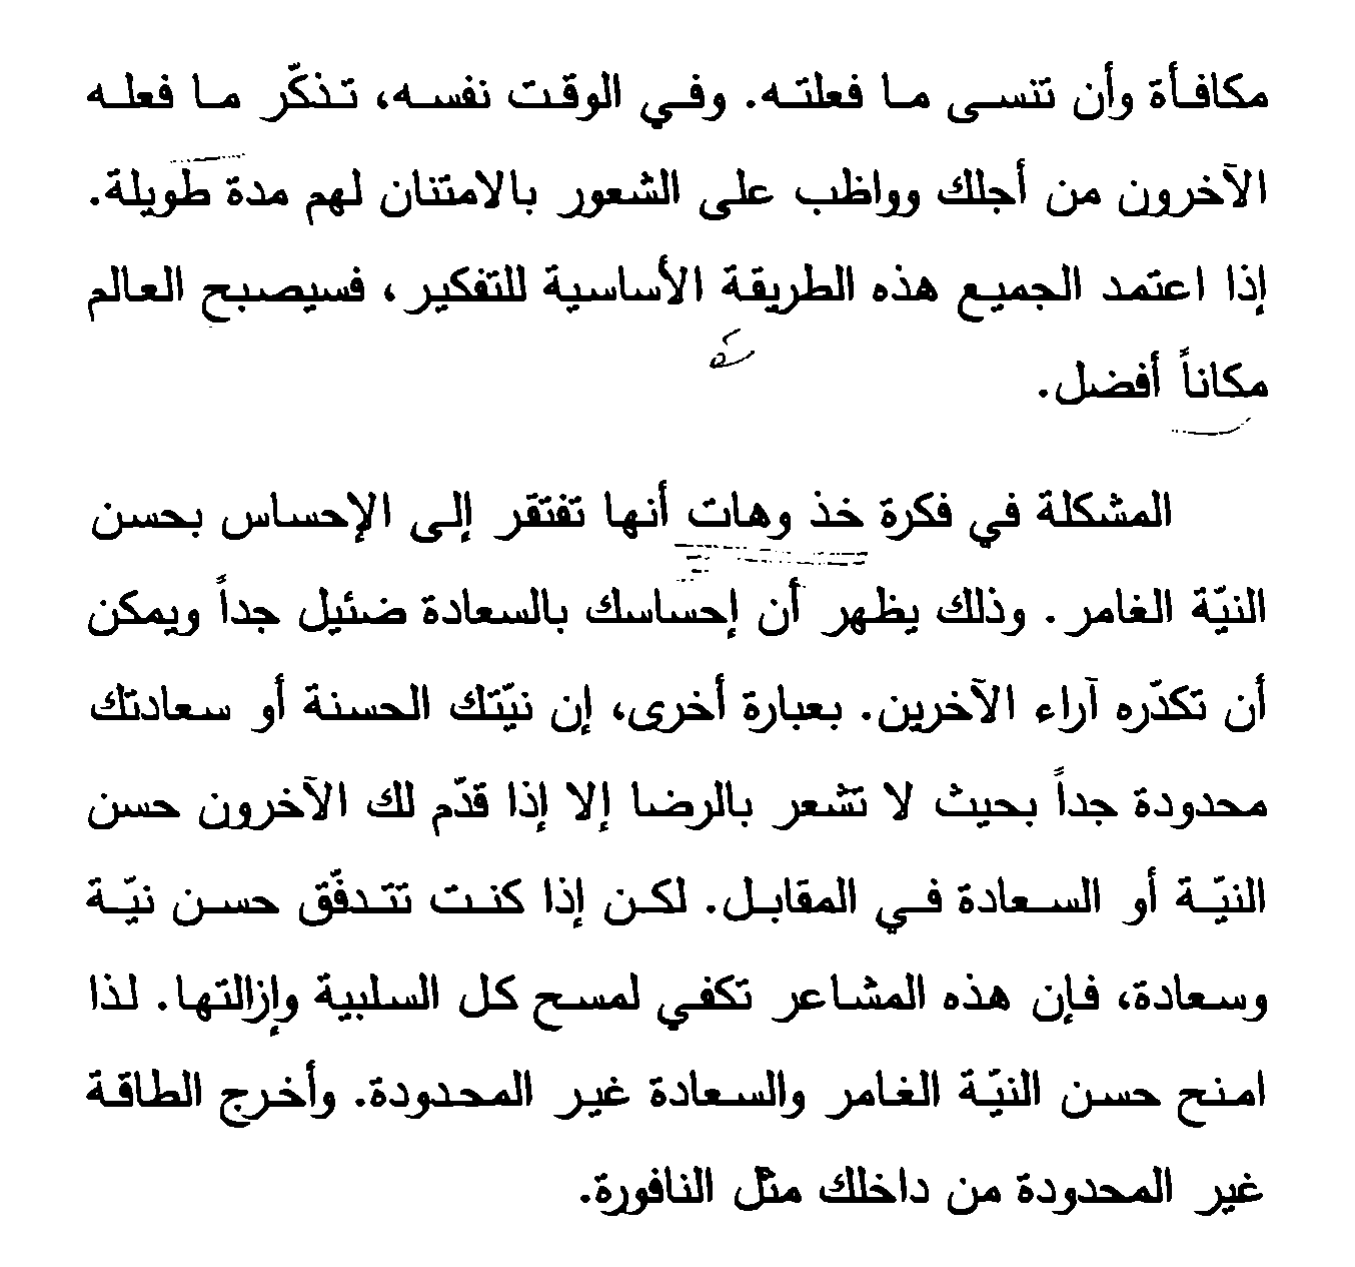 مكافأة وأن تنسى ما فعلته. وفي الوقت نفسه، تذكّر ما فعله
الآخرون من أجلك وواظب على الشعور بالامتنان لهم مدة طويلة.
إذا اعتمد الجميع هذه الطريقة الأساسية للتفكير، فسيصبح العالم
مكاناً أفضل.
المشكلة في فكرة خذ وهات أنها تفتقر إلى الإحساس بحسن
النيّة الغامر. وذلك يظهر أن إحساسك بالسعادة ضئيل جداً ويمكن
أن تكدّره آراء الآخرين. بعبارة أخرى، إن نيّتك الحسنة أو سعادتك
محدودة جداً بحيث لا تشعر بالرضا إلا إذا قدّم لك الآخرون حسن
النيّة أو السعادة في المقابل. لكن إذا كنت تتدفّق حسن نيّة
وسعادة، فإن هذه المشاعر تكفي لمسح كل السلبية وإزالتها. لذا
امنح حسن النيّة الغامر والسعادة غير المحدودة. وأخرج الطاقة
غير المحدودة من داخلك مثل النافورة.